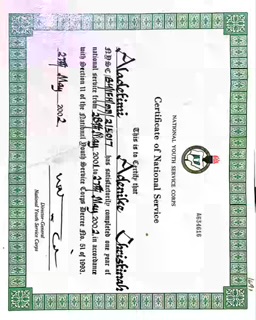 A634616
NATIONAL YOUTH SERVICE CORPS
Certificate of National Service
This is to Certify that
Aladetimi Adenike Christianah
N.Y.S.C. has satisfactorily completed one year of
national service from 28th May 2001 to 27th May 2002 in accordance
with Section 11 of the National Youth Service Corps Decree No. 51 of 1993.
27th May 2002
Director-General
National Youth Service Corps